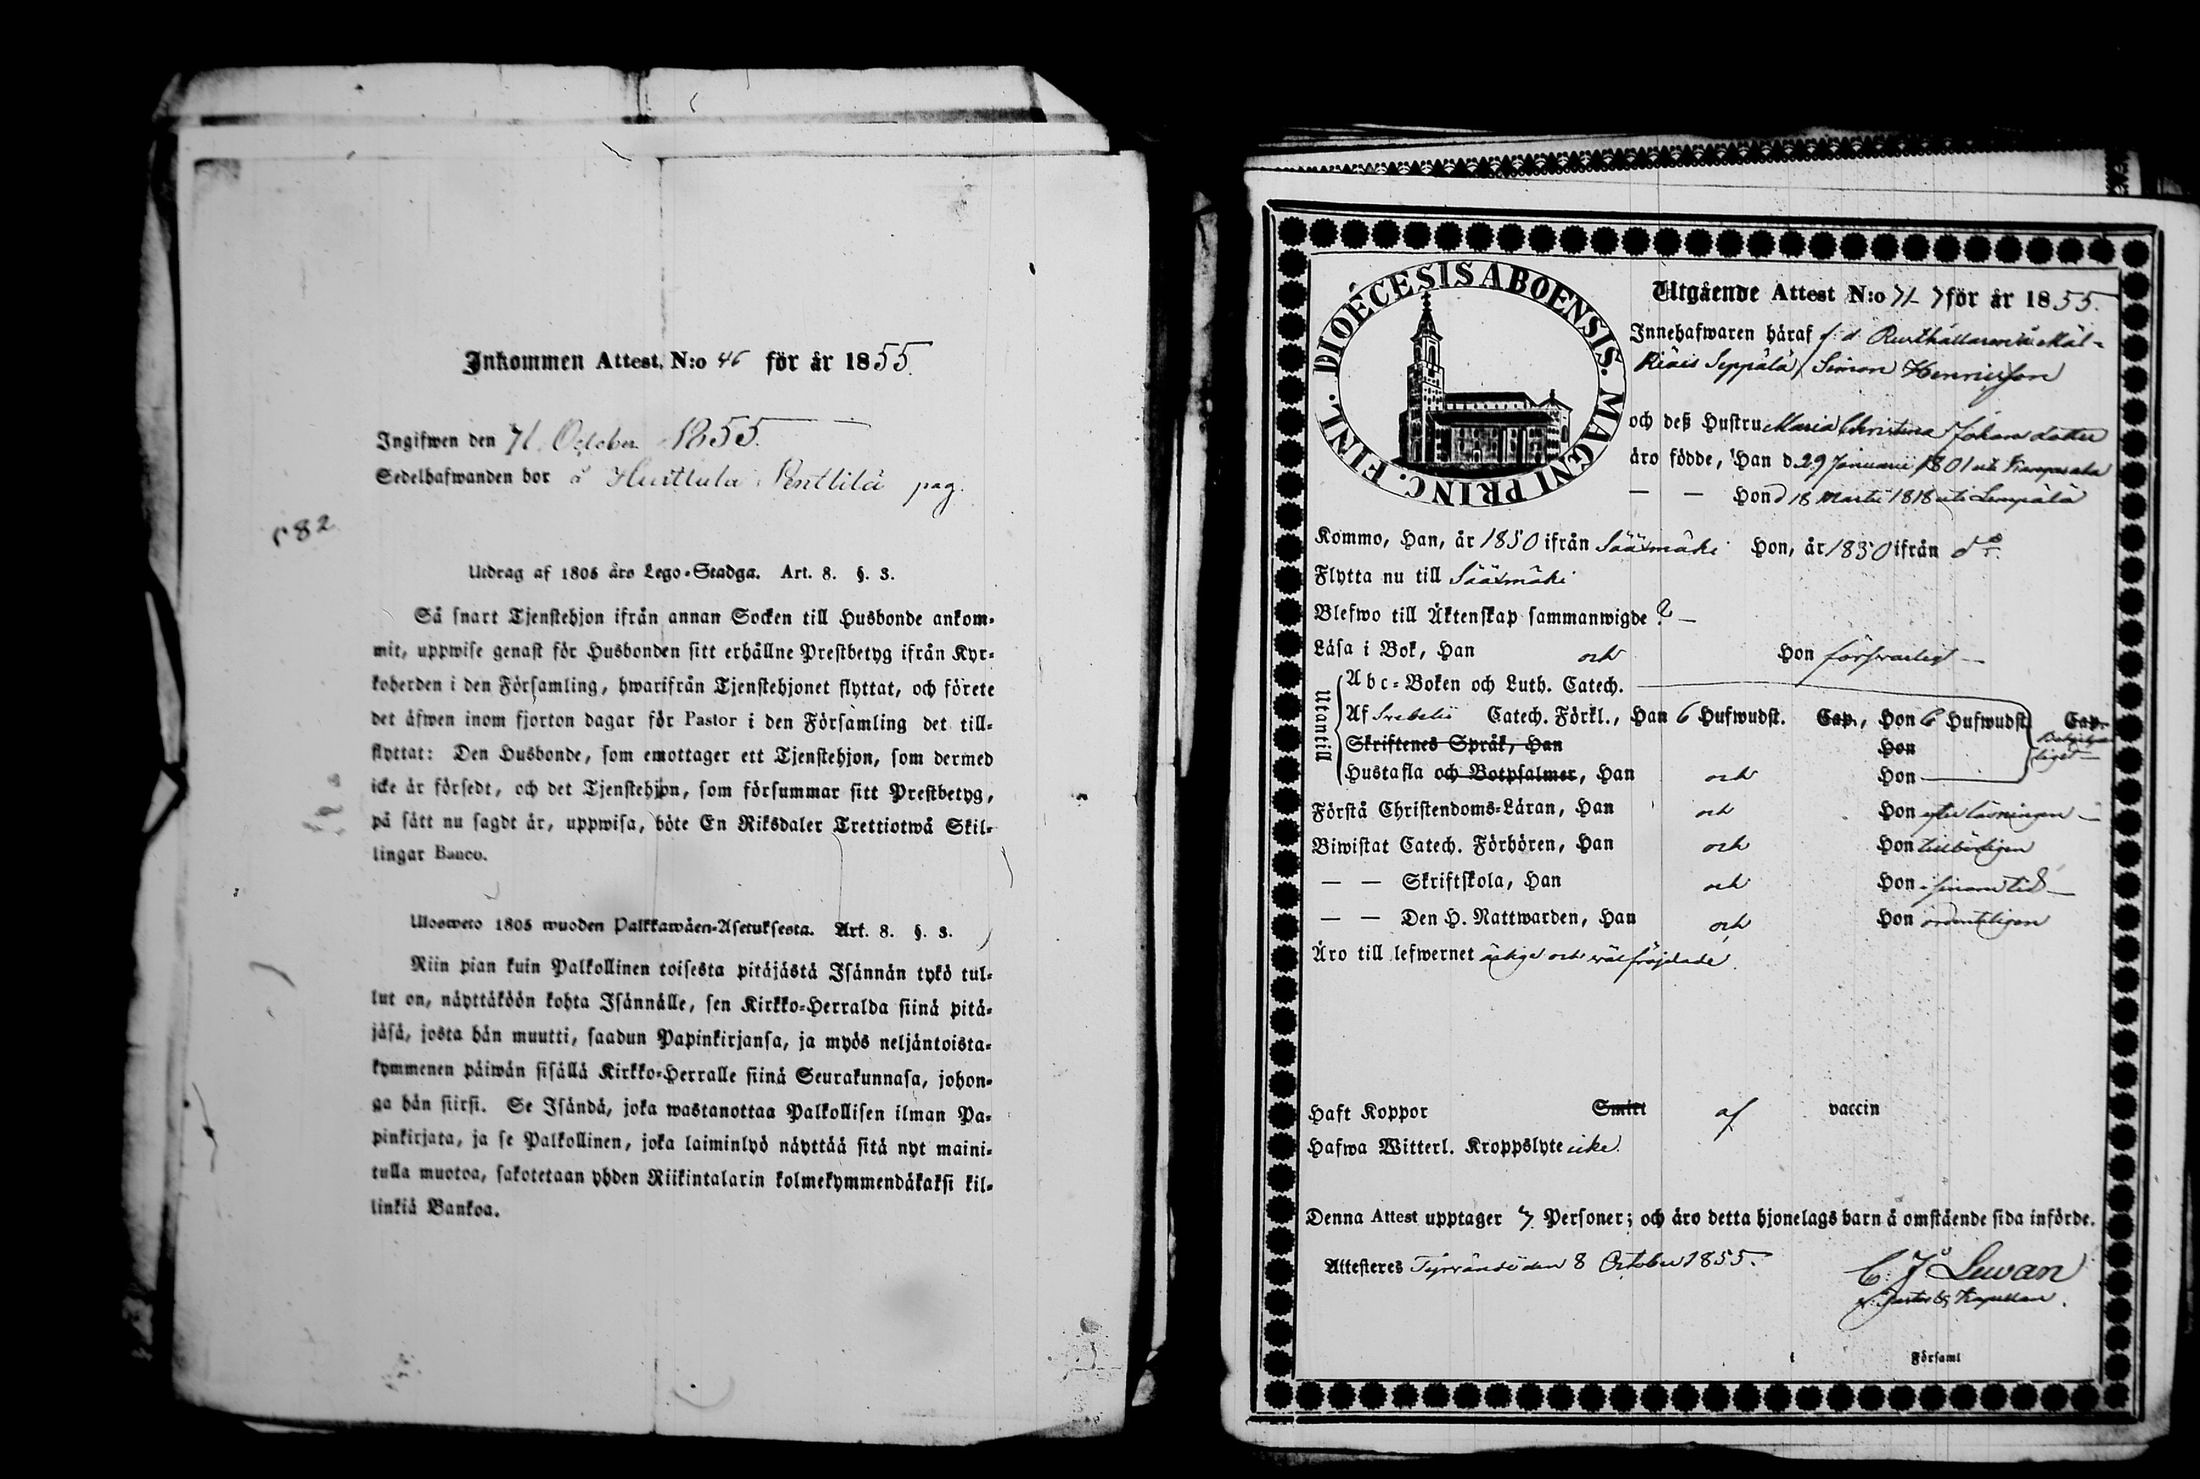 Inkommen Attest. N:o 46 för år 1855.
Ingifwen den October 1855.
Sedelhafwanden bor å Hurttala Penttilä pag.
582
Utdrag af 1805 års Lego-Stadga. Art. 8. §. 3.
Så snart Tjenstehjon ifrån annan Socken till Husbonde ankom-
mit, uppwise genast för Husbonden sitt erhållne Prestbetyg ifrån Kyr-
koherden i den Församling, hwarifrån Tjenstehjonet flyttat, och förete
det äfwen inom fjorton dagar för Pastor i den Församling det till-
flyttat: Den Husbonde, som emottager ett Tjenstehjon, som dermed
icke är försedt, och det Tjenstehjon, som försummar sitt Prestbetyg,
på sätt nu sagdt är, uppwisa, böte En Riksdaler Trettiotwå Skil-
lingar Banco.
Ulosweto 1805 wuoden Palkkawäen-Asetuksesta. Art. 8. §. 3.
Niin pian kuin Palkollinen toisesta pitäjästä Isännän tykö tul-
lut on, näyttäköön kohta Isännälle, sen Kirkko-Herralda siinä pitä-
jäsä, josta hän muutti, saadun Papinkirjansa, ja myös neljäntoista-
kymmenen päiwän sisällä Kirkko-Herralle siinä Seurakunnasa, johon-
ga hän siirsi. Se Isändä, joka wastanottaa Palkollisen ilman Pa-
pinkirjata, ja se Palkollinen, joka laiminlyö näyttää sitä nyt maini-
tulla muotoa, sakotetaan yhden Riikintalarin kolmekymmendäkaksi kil-
linkiä Bankoa.
DIOECESIS ABOENSIS. MAGNI PRINC. FINL.
Utgående Attest N:o för år 1855.
Innehafwaren häraf f: d. Rusthållaren å Mäl-
kiäis Seppälä / Simon Henricsson
och deß Hustru Maria Christina Johansdotter
äro födde, Han d 29 Januarii 1801 uti Kangasala
— — Hon d 18 Martii 1818 uti Lempälä
Kommo, Han, år 1850 ifrån Sääxmäki Hon, år 1850 ifrån d:o.
Flytta nu till Sääxmäki
Blefwo till Äktenskap sammanwigde ? —
Läsa i Bok, Han och Hon försvarligt —
Utantill
Abc-Boken och Luth. Catech.
Af Svebelii Catech. Förkl., Han 6 Hufwudst. Cap., Hon 6 Hufwudst. Cap.
Skriftenes Språk, Han Hon
Hustafla och Botpsalmer, Han och Hon
Förstå Christendoms-Läran, Han och Hon efter läsningen —
Biwistat Catech. Förhören, Han och Hon tillbörligen
— — Skriftskola, Han och Hon i sinom tid —
— — Den H. Nattwarden, Han och Hon ordentligen
Äro till lefwernet ärliga och wälfrejdade.
Haft Koppor Smitt af vaccin
Hafwa Witterl. Kroppslyte icke.
Denna Attest upptager 7 Personer; och äro detta hjonelags barn å omstående sida införde.
Attesteres Tyrväntö den 8 October 1855.
C: J Lewan
Kapellan.
i Församl